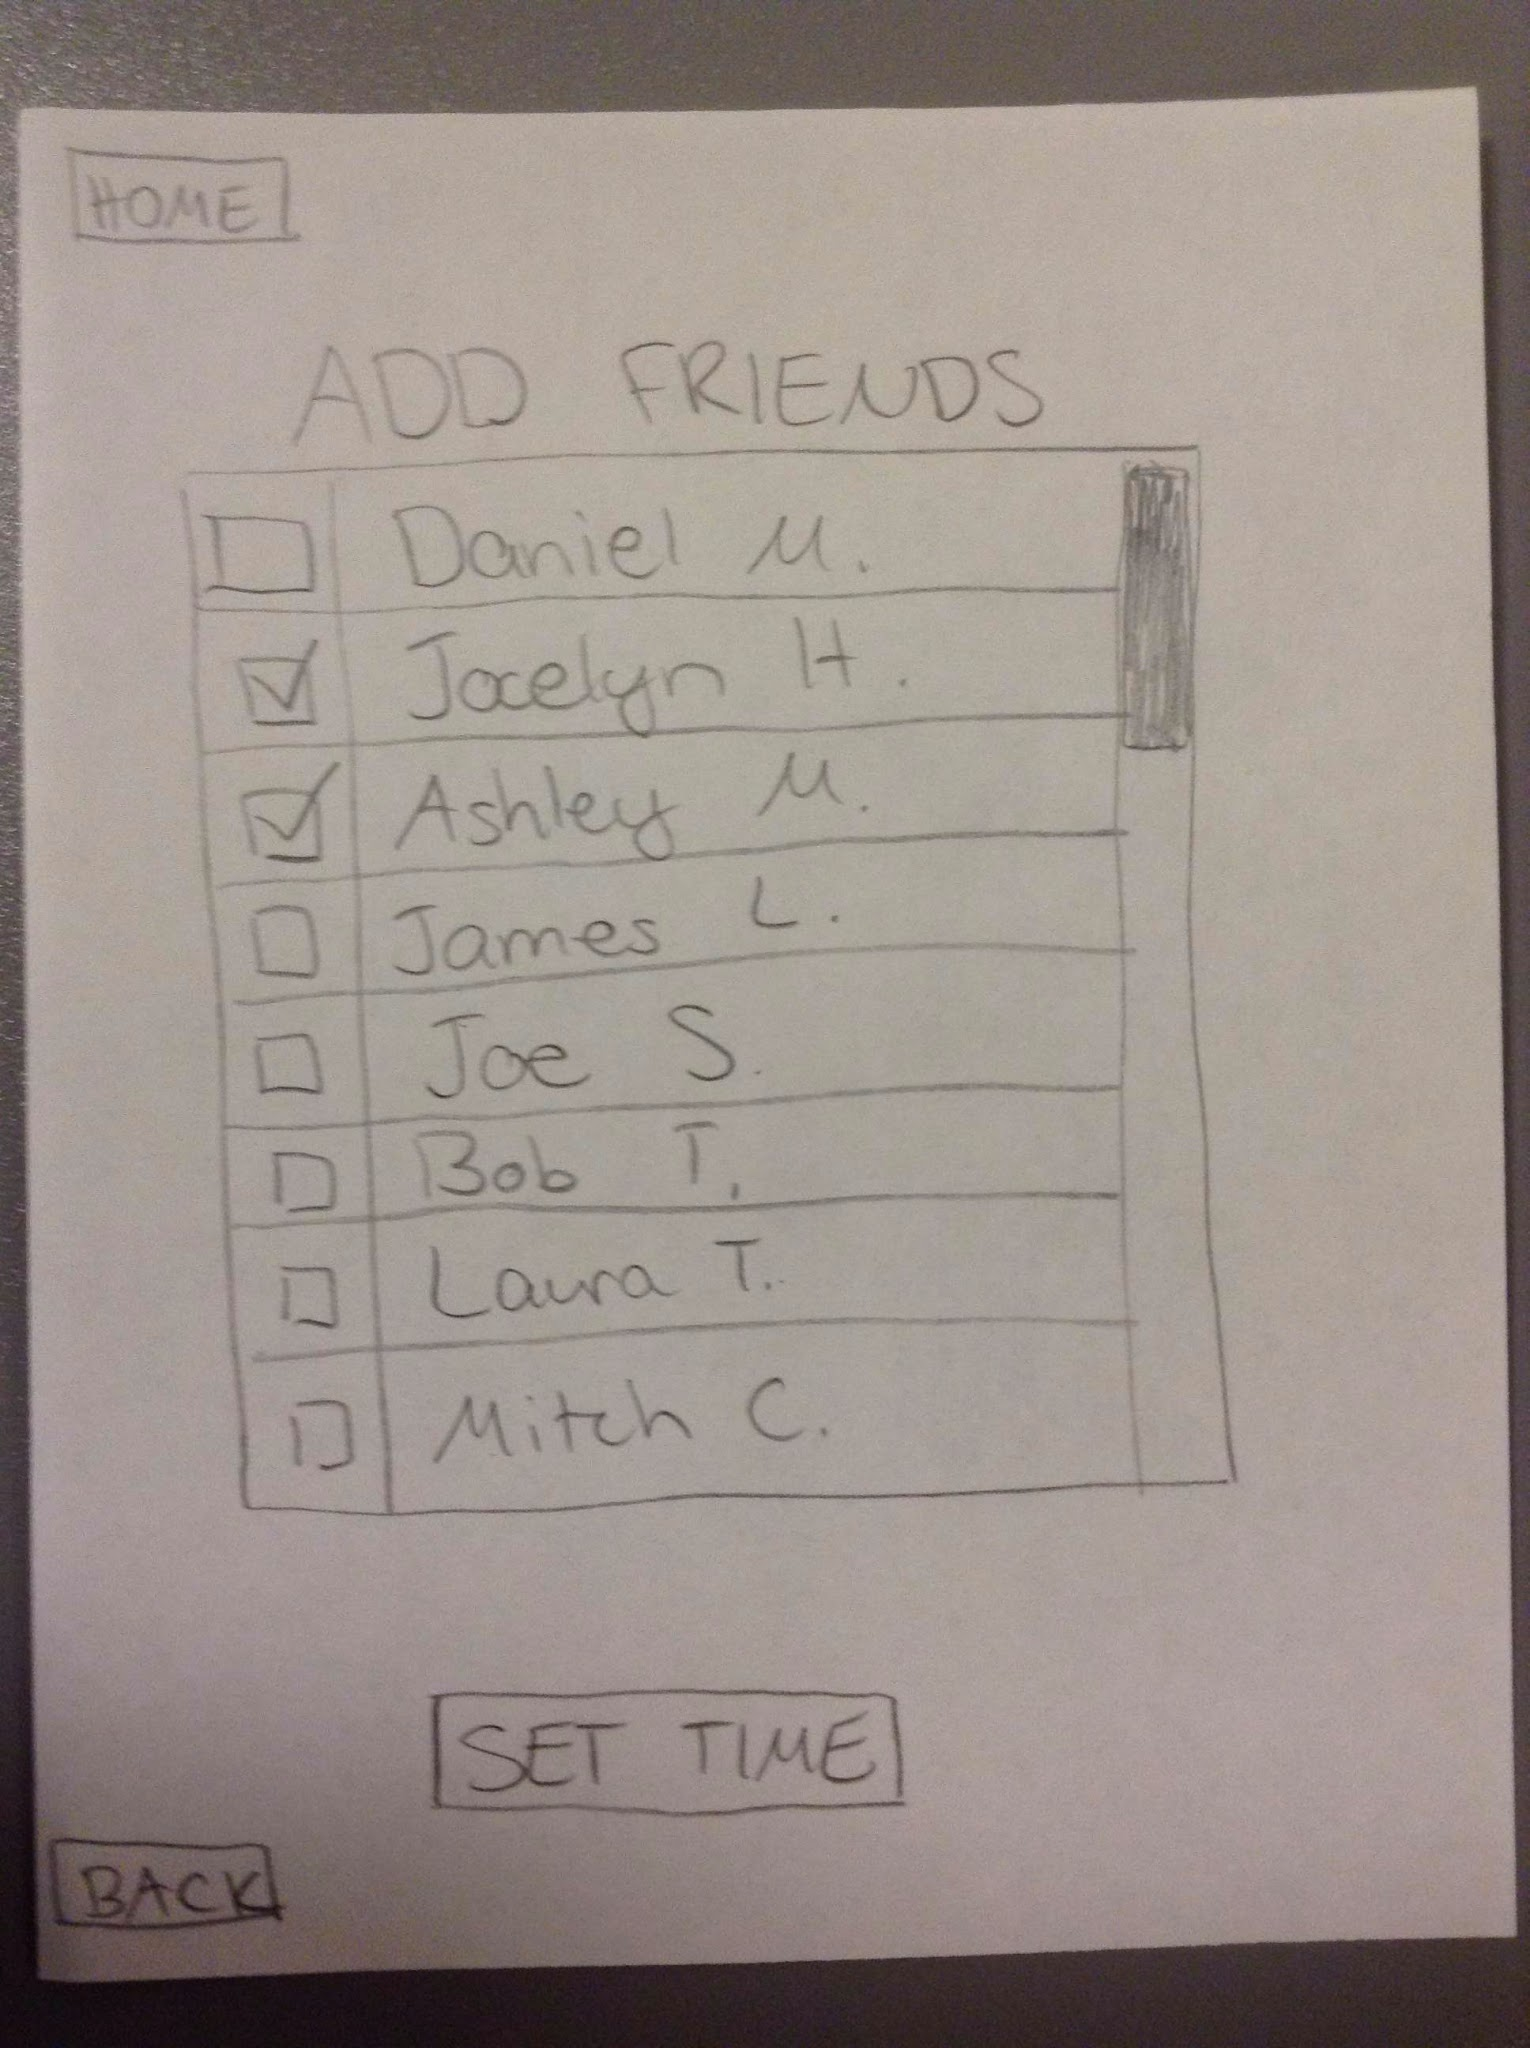 HOME
ADD FRIENDS
Daniel M.
Jocelyn H.
Ashley M.
James L.
Joe S.
Bob T.
Laura T.
Mitch C.
SET TIME
BACK